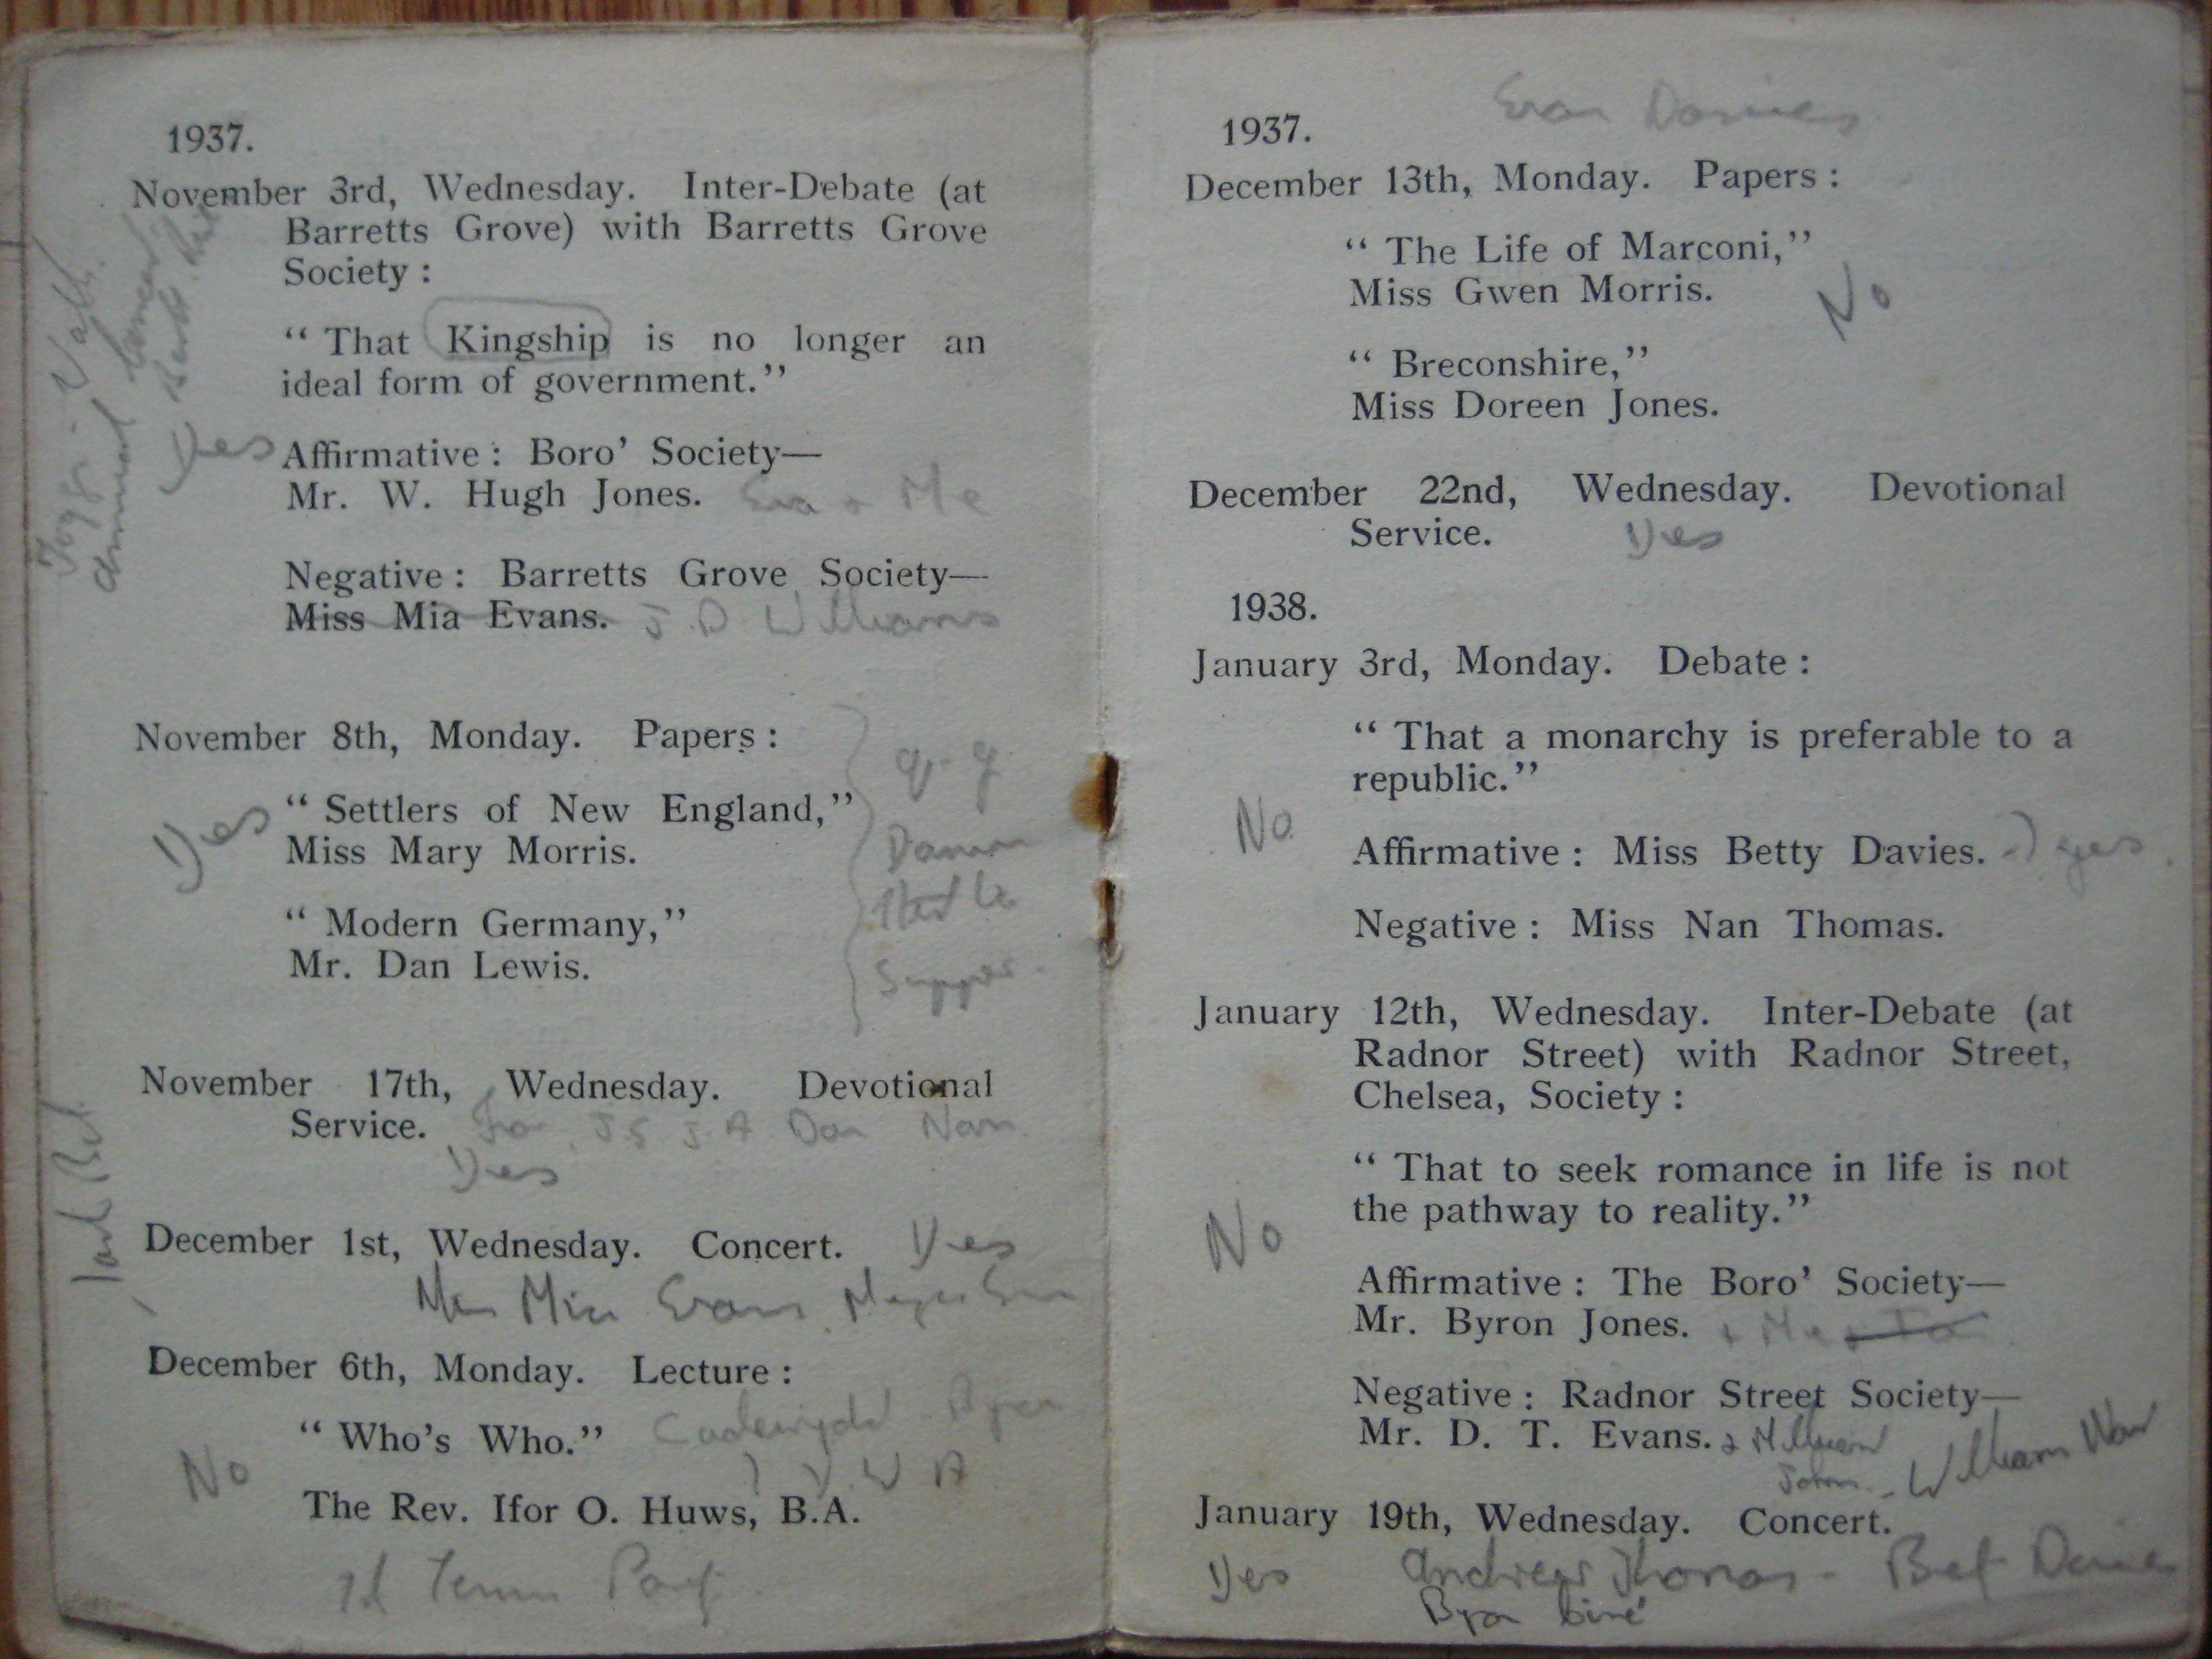 1937.
November 3rd, Wednesday. Inter-Debate (at
Barretts Grove) with Barretts Grove
Society :
“ That Kingship is no longer an
ideal form of government.”
Yes
Affirmative : Boro’ Society—
Mr. W. Hugh Jones. + Me
Negative : Barretts Grove Society—
Miss Mia Evans. J. D. Williams
November 8th, Monday. Papers :
“ Settlers of New England,”
Yes
Miss Mary Morris.
“ Modern Germany,”
Mr. Dan Lewis.
Supper.
November 17th, Wednesday. Devotional
Service. J.S J.A Dan Nan
Yes
December 1st, Wednesday. Concert. Yes
Evans
December 6th, Monday. Lecture :
“ Who’s Who.”
No
The Rev. Ifor O. Huws, B.A.
Davies
1937.
December 13th, Monday. Papers :
“ The Life of Marconi,”
Miss Gwen Morris.
No
“ Breconshire,”
Miss Doreen Jones.
December 22nd, Wednesday. Devotional
Service. Yes
1938.
January 3rd, Monday. Debate :
“ That a monarchy is preferable to a
republic.”
No
Affirmative : Miss Betty Davies. yes
Negative : Miss Nan Thomas.
January 12th, Wednesday. Inter-Debate (at
Radnor Street) with Radnor Street,
Chelsea, Society :
“ That to seek romance in life is not
the pathway to reality.”
No
Affirmative : The Boro’ Society—
Mr. Byron Jones. + Me
Negative : Radnor Street Society—
Mr. D. T. Evans.
John William
January 19th, Wednesday. Concert.
Yes Andrew Thomas -